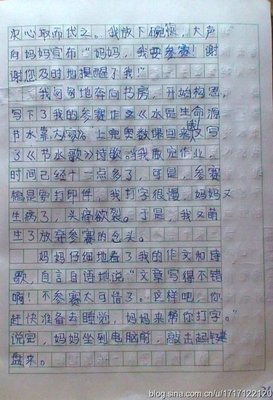 求心取而代之。我放下碗筷，大声
向妈妈宣布“妈妈，我要参赛！谢
谢您及时地提醒了我！”
我匆匆地奔向书房，开始构思，
写下了我的参赛作文《水是生命源
节水靠大家》
了《节水歌》诗歌。当我敲定作业，
时间已经十一点多了，可是，参赛
稿是要打印件，我打字很慢，妈妈又
生病了，头痛欲裂。于是，我又萌
生了放弃参赛的念头。
妈妈仔细地看了我的作文和诗
歌，自言自语地说：“文章写得不错
啊！不参赛太可惜了。这样吧，你
赶快准备去睡觉，妈妈来帮你打字。”
说完，妈妈坐到电脑前，敲击起键
盘来。
blog.sina.com.cn/u/1717122120